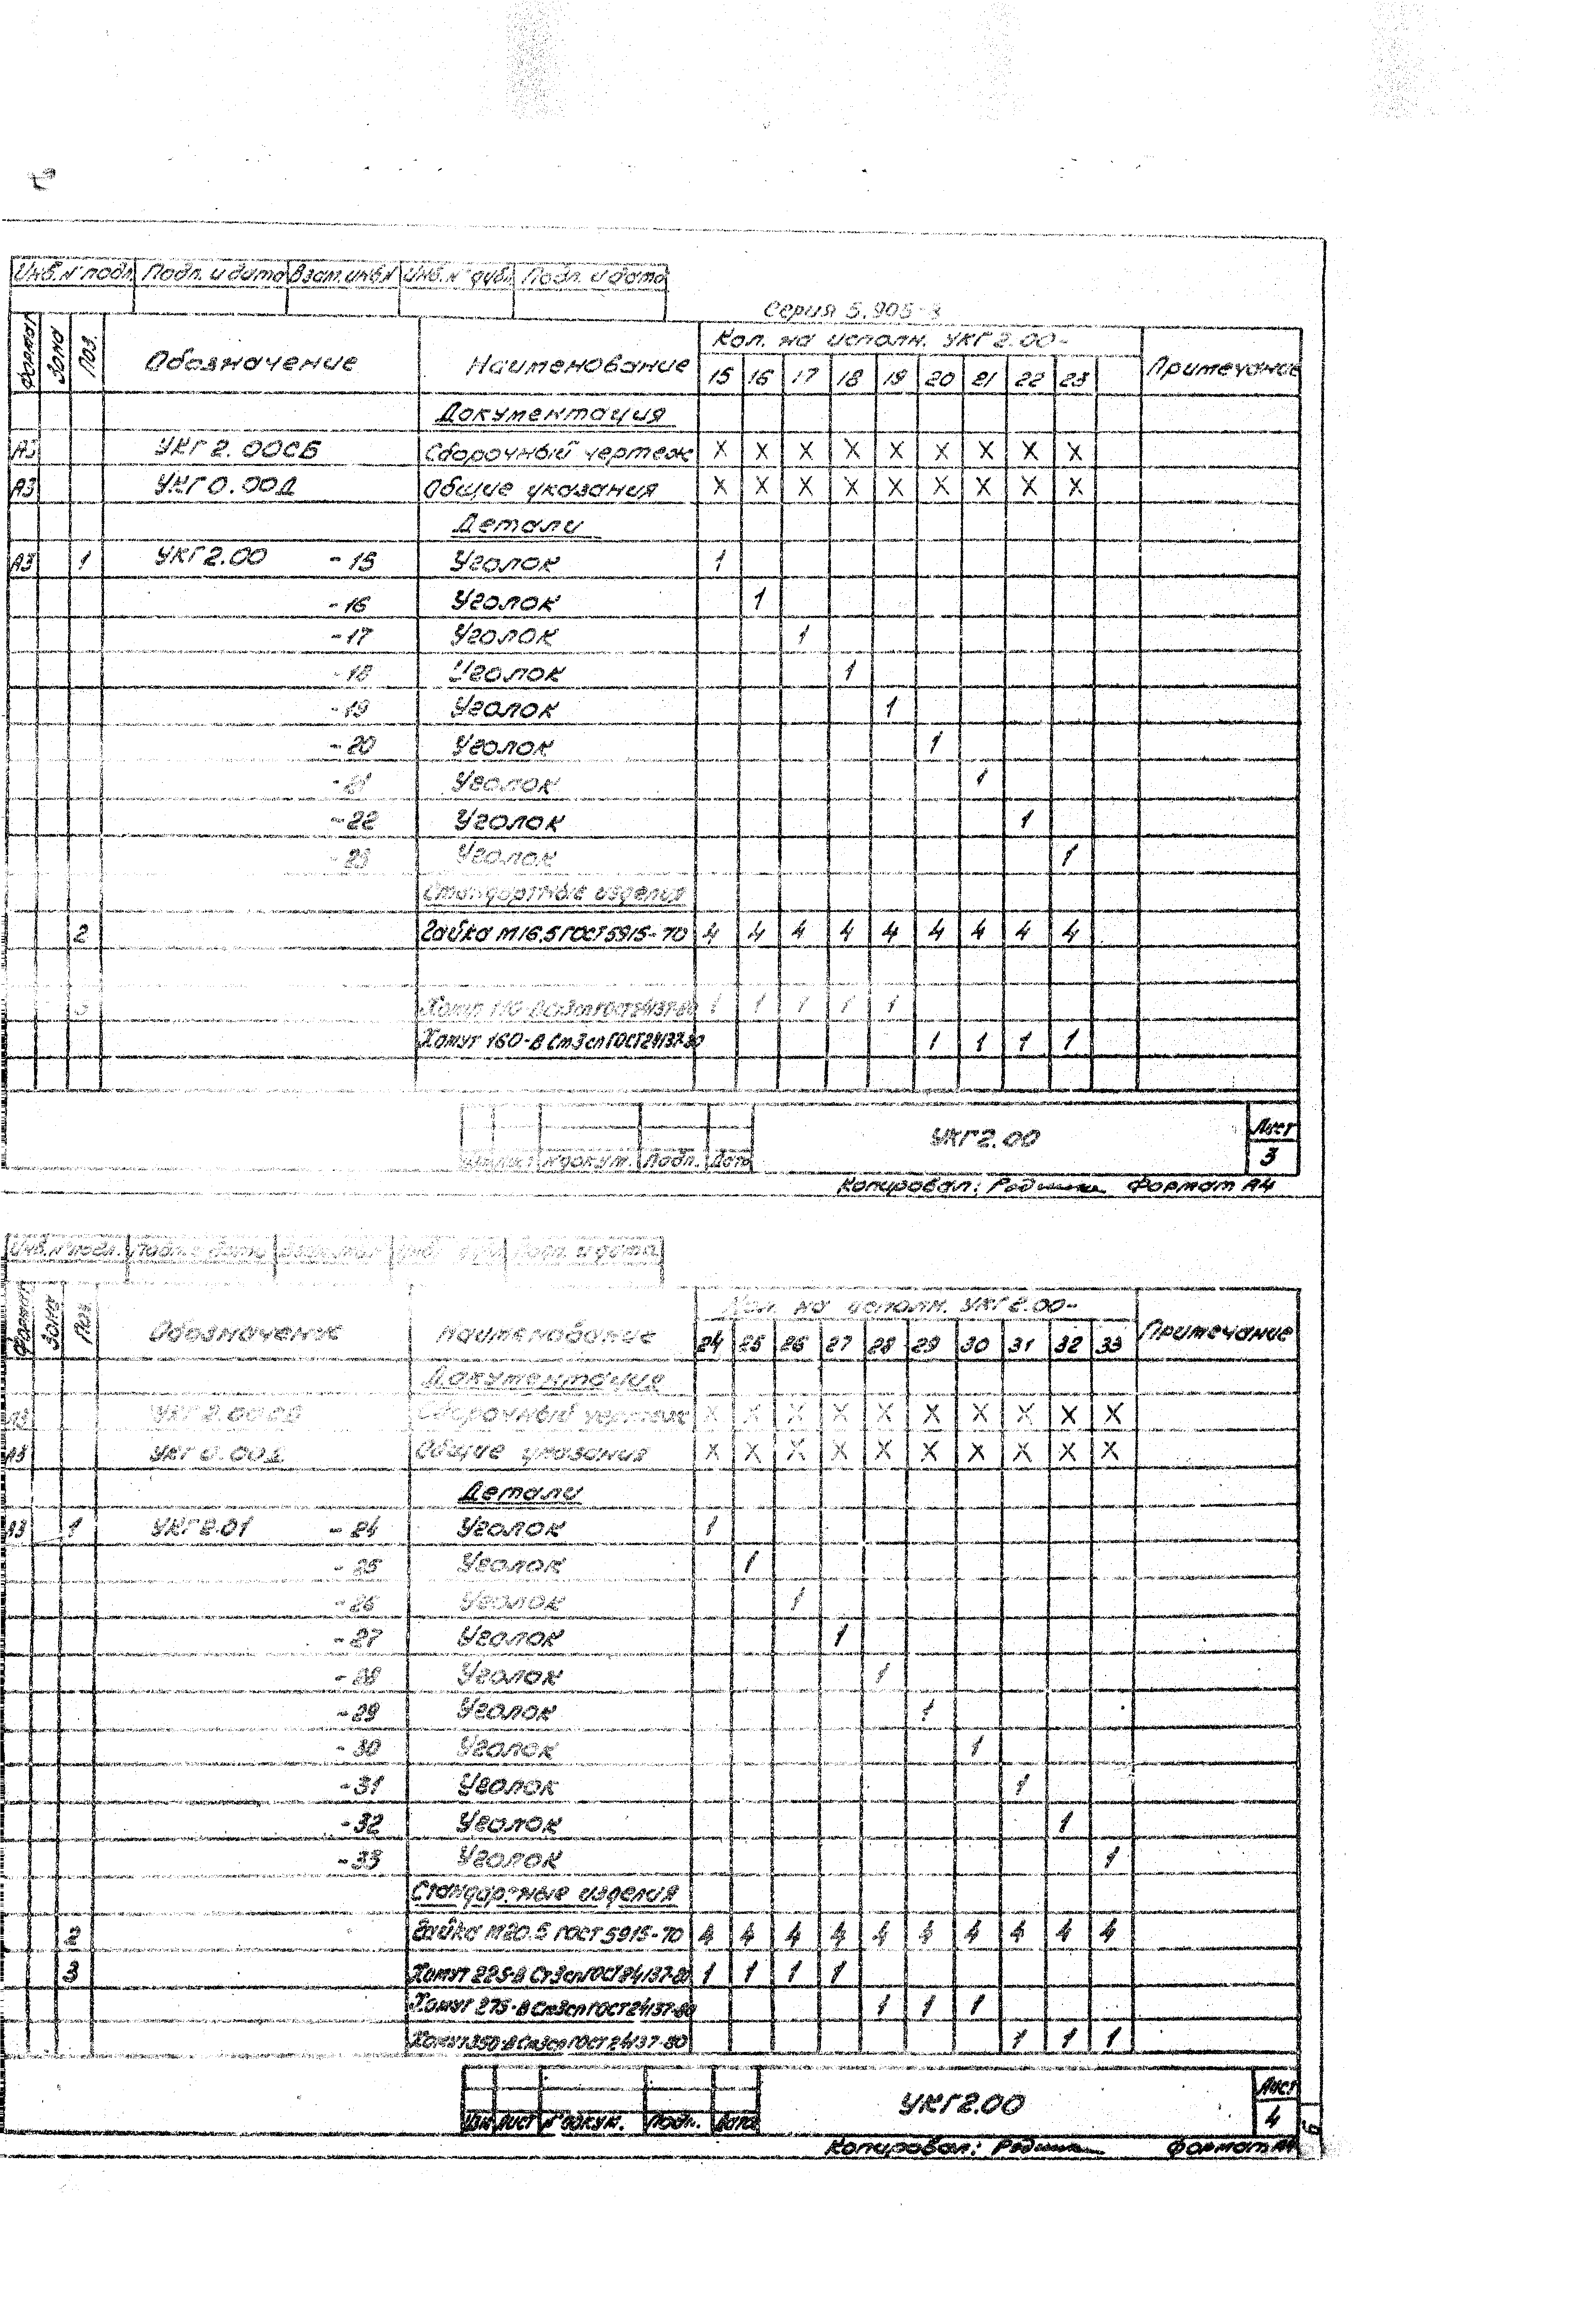 Инв.№ подл. Подп. и дата Взам.инв.№ Инв.№ дубл. Подп. и дата
Серия 5.905-
Формат Зона Поз. Обозначение Наименование Кол. на исполн. УКГ2.00- Примечание
15 16 17 18 19 20 21 22 23
Документация
А3 УКГ2.00СБ Сборочный чертеж Х Х Х Х Х Х Х Х Х
А3 УКГ0.00Д Общие указания Х Х Х Х Х Х Х Х Х
Детали
А3 1 УКГ2.00 -15 Уголок 1
-16 Уголок 1
-17 Уголок 1
-18 Уголок 1
-19 Уголок 1
-20 Уголок 1
-21 Уголок 1
-22 Уголок 1
-23 Уголок 1
Стандартные изделия
2 Гайка М16.5 ГОСТ 5915-70 4 4 4 4 4 4 4 4 4
3 Хомут ГОСТ 24137-80 1 1 1 1 1
Хомут 160-В Ст3сп ГОСТ 24137-80 1 1 1 1
Лист № докум. Подп. Дата УКГ2.00 Лист
3
Копировал: Формат А4
Инв.№ подл. Подп. и дата Подп. и дата
Формат Зона Поз. Обозначение Наименование Кол. на исполн. УКГ2.00- Примечание
24 25 26 27 28 29 30 31 32 33
Документация
А3 УКГ2.00СБ Сборочный чертеж Х Х Х Х Х Х Х Х Х Х
А3 УКГ0.00Д Общие указания Х Х Х Х Х Х Х Х Х Х
Детали
А3 1 УКГ2.01 -24 Уголок 1
-25 Уголок 1
-26 Уголок 1
-27 Уголок 1
-28 Уголок 1
-29 Уголок 1
-30 Уголок 1
-31 Уголок 1
-32 Уголок 1
-33 Уголок 1
Стандартные изделия
2 Гайка М20.5 ГОСТ 5915-70 4 4 4 4 4 4 4 4 4 4
3 Хомут 225-В Ст3сп ГОСТ 24137-80 1 1 1 1
Хомут 275-В Ст3сп ГОСТ 24137-80 1 1 1
Хомут 350-В Ст3сп ГОСТ 24137-80 1 1 1
Изм Лист № докум. Подп. Дата УКГ2.00 Лист
4
Копировал: Формат А4